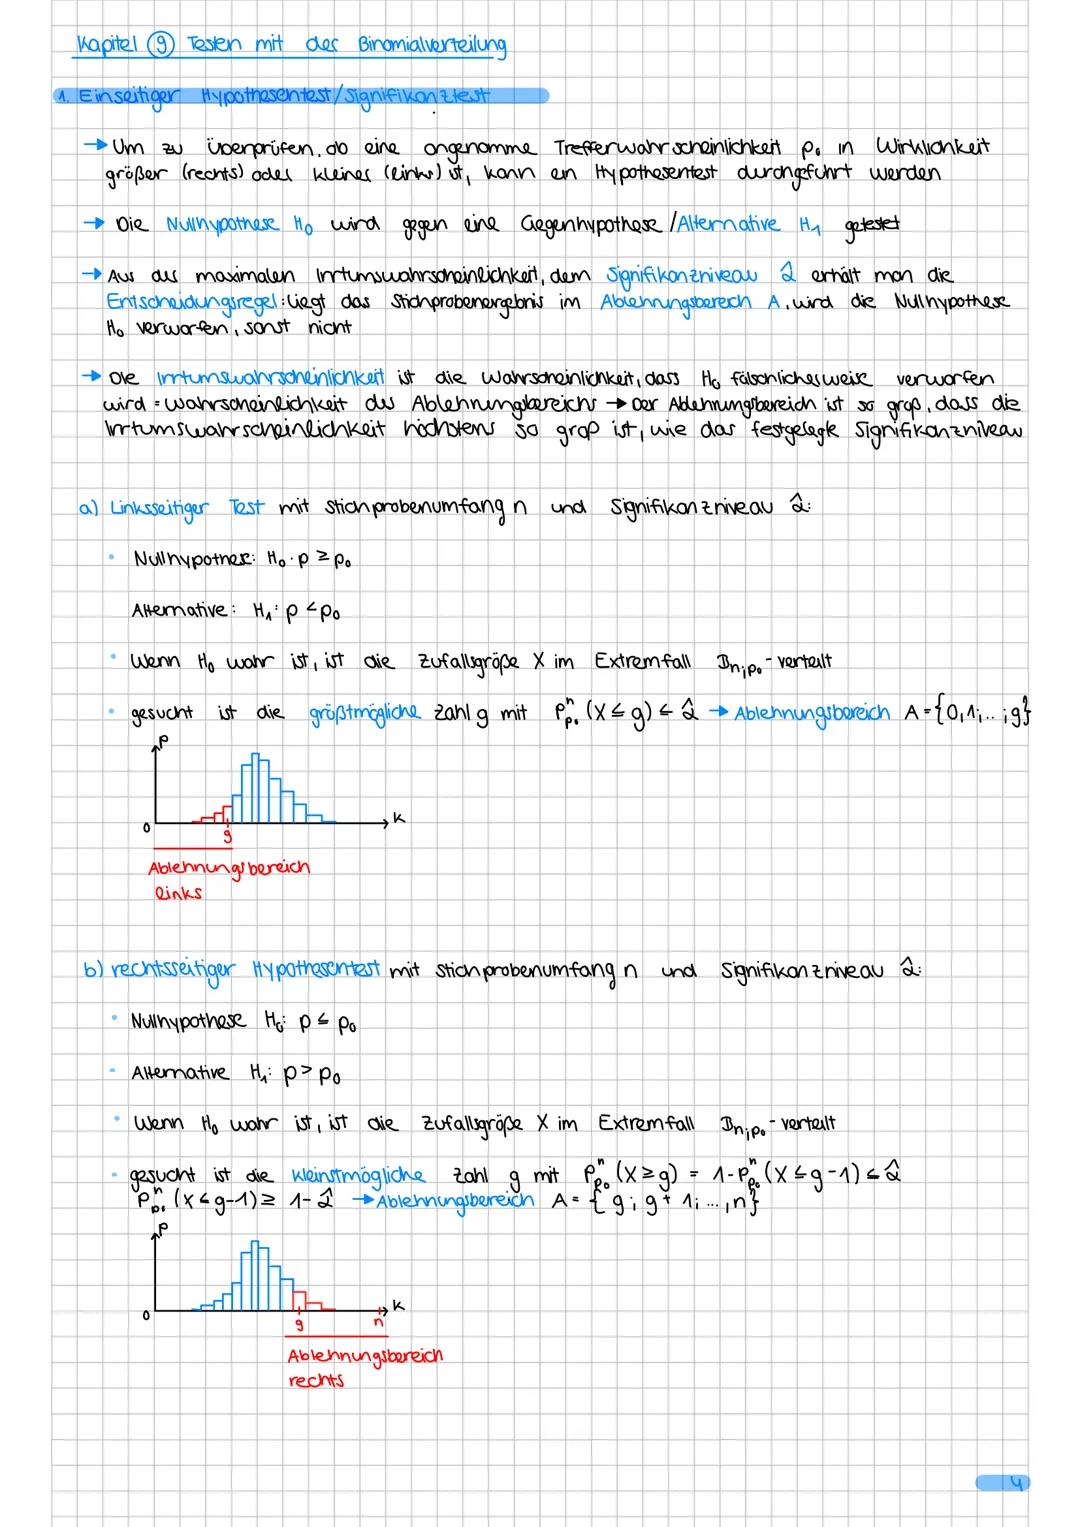 Kapitel ⑨ Testen mit der Binomialverteilung
1. Einseitiger Hypothesentest/Signifikanztest
→ Um zu überprüfen, ob eine angenomme Trefferwahrscheinlichkeit p₀ in Wirklichkeit
größer (rechts) oder kleiner (links) ist, kann ein Hypothesentest durchgeführt werden
→ Die Nullhypothese H₀ wird gegen eine Gegenhypothese /Alternative H₁ getestet
→ Aus der maximalen Irrtumswahrscheinlichkeit, dem Signifikanzniveau â erhält man die
Entscheidungsregel: Liegt das Stichprobenergebnis im Ablehnungsbereich A, wird die Nullhypothese
H₀ verworfen, sonst nicht
→ Die Irrtumswahrscheinlichkeit ist die Wahrscheinlichkeit, dass H₀ fälschlicherweise verworfen
wird = Wahrscheinlichkeit des Ablehnungbereichs → Der Ablehnungsbereich ist so groß, dass die
Irrtumswahrscheinlichkeit höchstens so groß ist, wie das festgelegte Signifikanzniveau
a) Linksseitiger Test mit Stichprobenumfang n und Signifikanzniveau â:
• Nullhypothese: H₀: p ≥ p₀
Alternative: H₁: p < p₀
• Wenn H₀ wahr ist, ist die Zufallsgröße X im Extremfall Bn;p₀ - verteilt
• gesucht ist die größtmögliche Zahl g mit Pⁿp₀ (X ≤ g) ≤ â → Ablehnungsbereich A = {0,1;..;g}
P
0 g K
Ablehnungsbereich
links
b) rechtsseitiger Hypothesentest mit Stichprobenumfang n und Signifikanzniveau â:
• Nullhypothese H₀: p ≤ p₀
• Alternative H₁: p > p₀
• Wenn H₀ wahr ist, ist die Zufallsgröße X im Extremfall Bn;p₀ - verteilt
• gesucht ist die kleinstmögliche Zahl g mit Pⁿp₀ (X ≥ g) = 1-Pⁿp₀ (X ≤ g-1) ≤ â
Pⁿp₀ (X ≤ g-1) ≥ 1-â → Ablehnungsbereich A = {g; g+1; ...,n}
P
0 g n K
Ablehnungsbereich
rechts
4